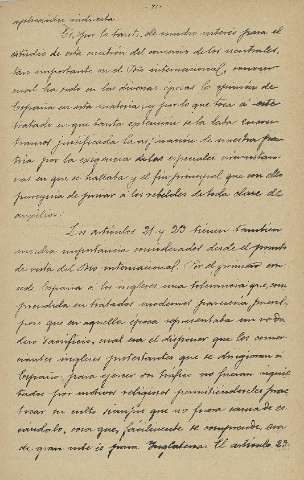 aplicación indirecta.
Es, por lo tanto, de mucho interés para el
estudio de esta cuestión del comercio de los neutrales,
tan importante en el Dro internacional, conocer
cual ha sido en las diversas épocas la opinión de
España en esta materia, y por lo que toca al este
tratado en que tanta extensión se la daba encon-
tramos justificada la opinión de nuestra pa-
tria por la exigencia de las especiales circunstan-
cias en que se hallaba y el fin principal que con ello
perseguía de privar á los rebeldes de toda clase de
auxilios.
Los artículos 21 y 23 tienen también
mucha importancia considerados desde el punto
de vista del Dro internacional. Por el primero con-
cede España á los ingleses una tolerancia que com-
prendida en tratados modernos parecería pueril,
pero que en aquella época representaba un verda-
dero sacrificio, cual era el disponer que los comer-
ciantes ingleses protestantes que se dirigieran á
España para ejercer su tráfico no fueran inquie-
tados por motivos religiosos permitiéndoseles prac-
ticar su culto siempre que no fuera causa de es-
cándalo, cosa que, fácilmente se comprende, era
de gran interés para Inglaterra. El artículo 23